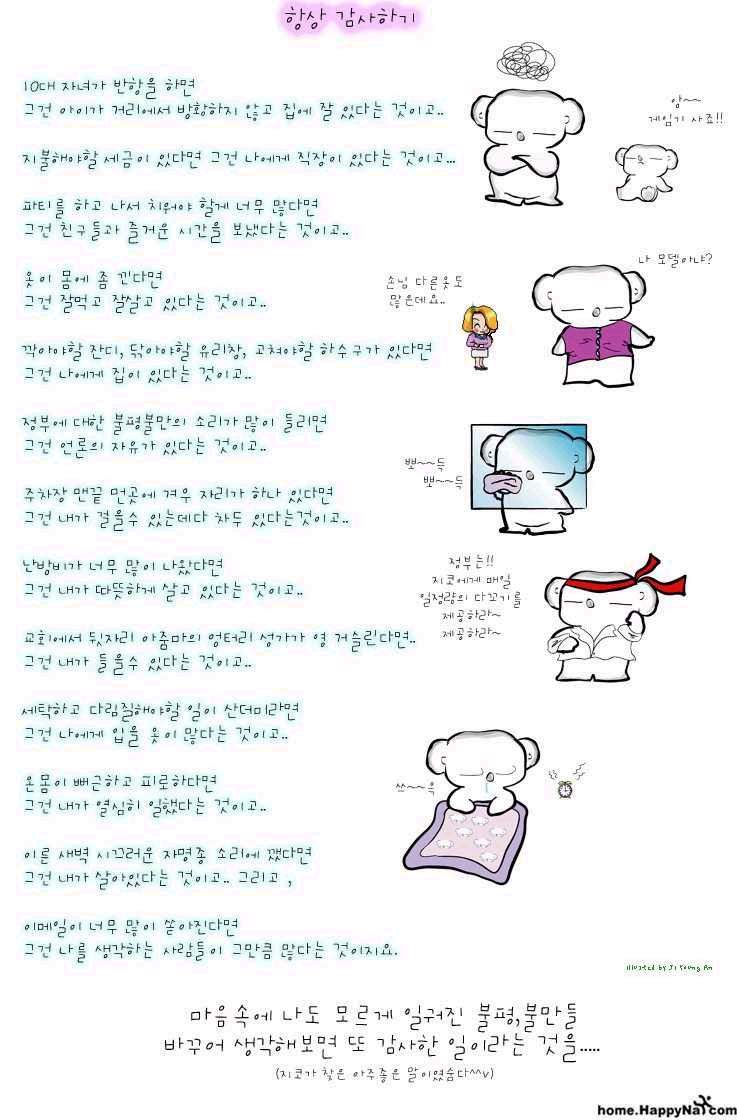 항상 감사하기
10대 자녀가 반항을 하면
그건 아이가 거리에서 방황하지 않고 집에 잘 있다는 것이고..
지불해야할 세금이 있다면 그건 나에게 직장이 있다는 것이고...
파티를 하고 나서 치워야 할게 너무 많다면
그건 친구들과 즐거운 시간을 보냈다는 것이고..
옷이 몸에 좀 낀다면
그건 잘먹고 잘살고 있다는 것이고..
깎아야할 잔디, 닦아야할 유리창, 고쳐야할 하수구가 있다면
그건 나에게 집이 있다는 것이고..
정부에 대한 불평불만의 소리가 많이 들리면
그건 언론의 자유가 있다는 것이고..
주차장 맨끝 먼곳에 겨우 자리가 하나 있다면
그건 내가 걸을수 있는데다 차두 있다는것이고..
난방비가 너무 많이 나왔다면
그건 내가 따뜻하게 살고 있다는 것이고..
교회에서 뒷자리 아줌마의 엉터리 성가가 영 거슬린다면..
그건 내가 들을수 있다는 것이고..
세탁하고 다림질해야할 일이 산더미라면
그건 나에게 입을 옷이 많다는 것이고..
온몸이 뻐근하고 피로하다면
그건 내가 열심히 일했다는 것이고..
이른 새벽 시끄러운 자명종 소리에 깼다면
그건 내가 살아있다는 것이고.. 그리고 ,
이메일이 너무 많이 쏟아진다면
그건 나를 생각하는 사람들이 그만큼 많다는 것이지요.
앙~~
게임기 사죠!!
나 모델이냐?
손님 다른옷도
많은데요..
뽀~~득
뽀~~득
정부는!!
지코에게 매일
일정량의 다꼬기를
제공하라~
제공하라~
쓰~~윽
illusted by Ji Young An
마음속에 나도 모르게 일궈진 불평,불만들
바꾸어 생각해보면 또 감사한 일이라는 것을.....
(지코가 찾은 아주좋은 말이였슴다^^v)
home.HappyNax.com